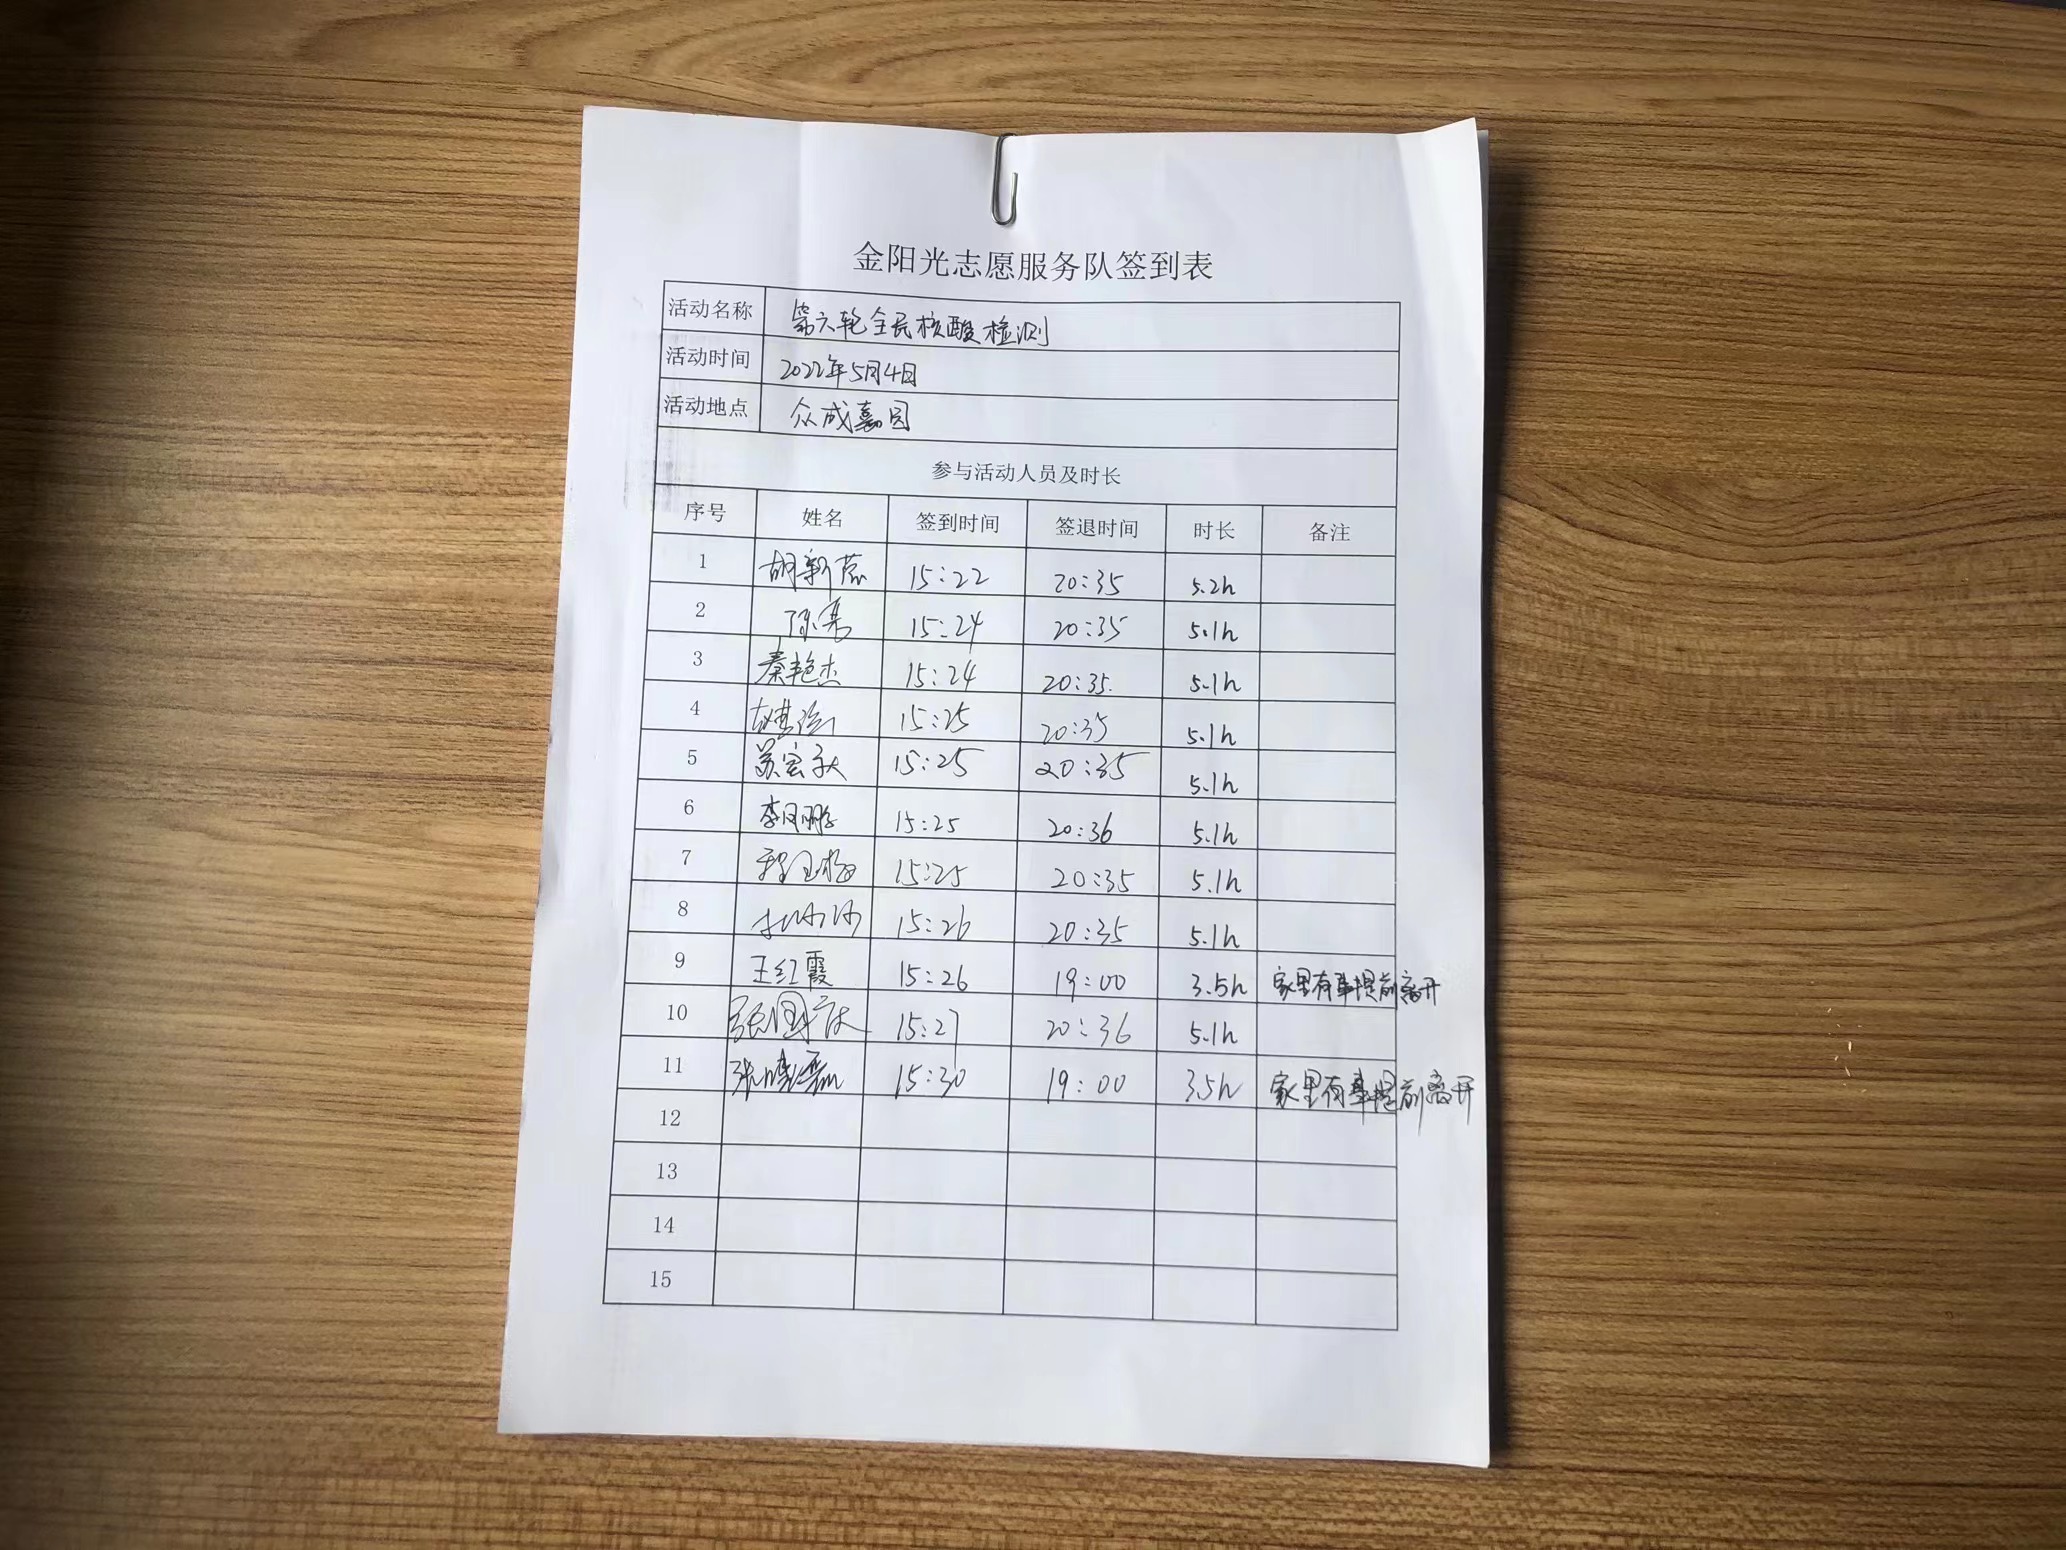 金阳光志愿服务队签到表
活动名称 第六轮全民核酸检测
活动时间 2022年5月4日
活动地点 众成嘉园
参与活动人员及时长
序号 姓名 签到时间 签退时间 时长 备注
1 胡新蕊 15:22 20:35 5.2h
2 陈亮 15:24 20:35 5.1h
3 秦艳杰 15:24 20:35 5.1h
4 15:25 20:35 5.1h
5 苏宏秋 15:25 20:35 5.1h
6 李凤鹏 15:25 20:36 5.1h
7 程玉梅 15:25 20:35 5.1h
8 15:26 20:35 5.1h
9 王红霞 15:26 19:00 3.5h 家里有事提前离开
10 张国庆 15:27 20:36 5.1h
11 张晓磊 15:30 19:00 3.5h 家里有事提前离开
12
13
14
15